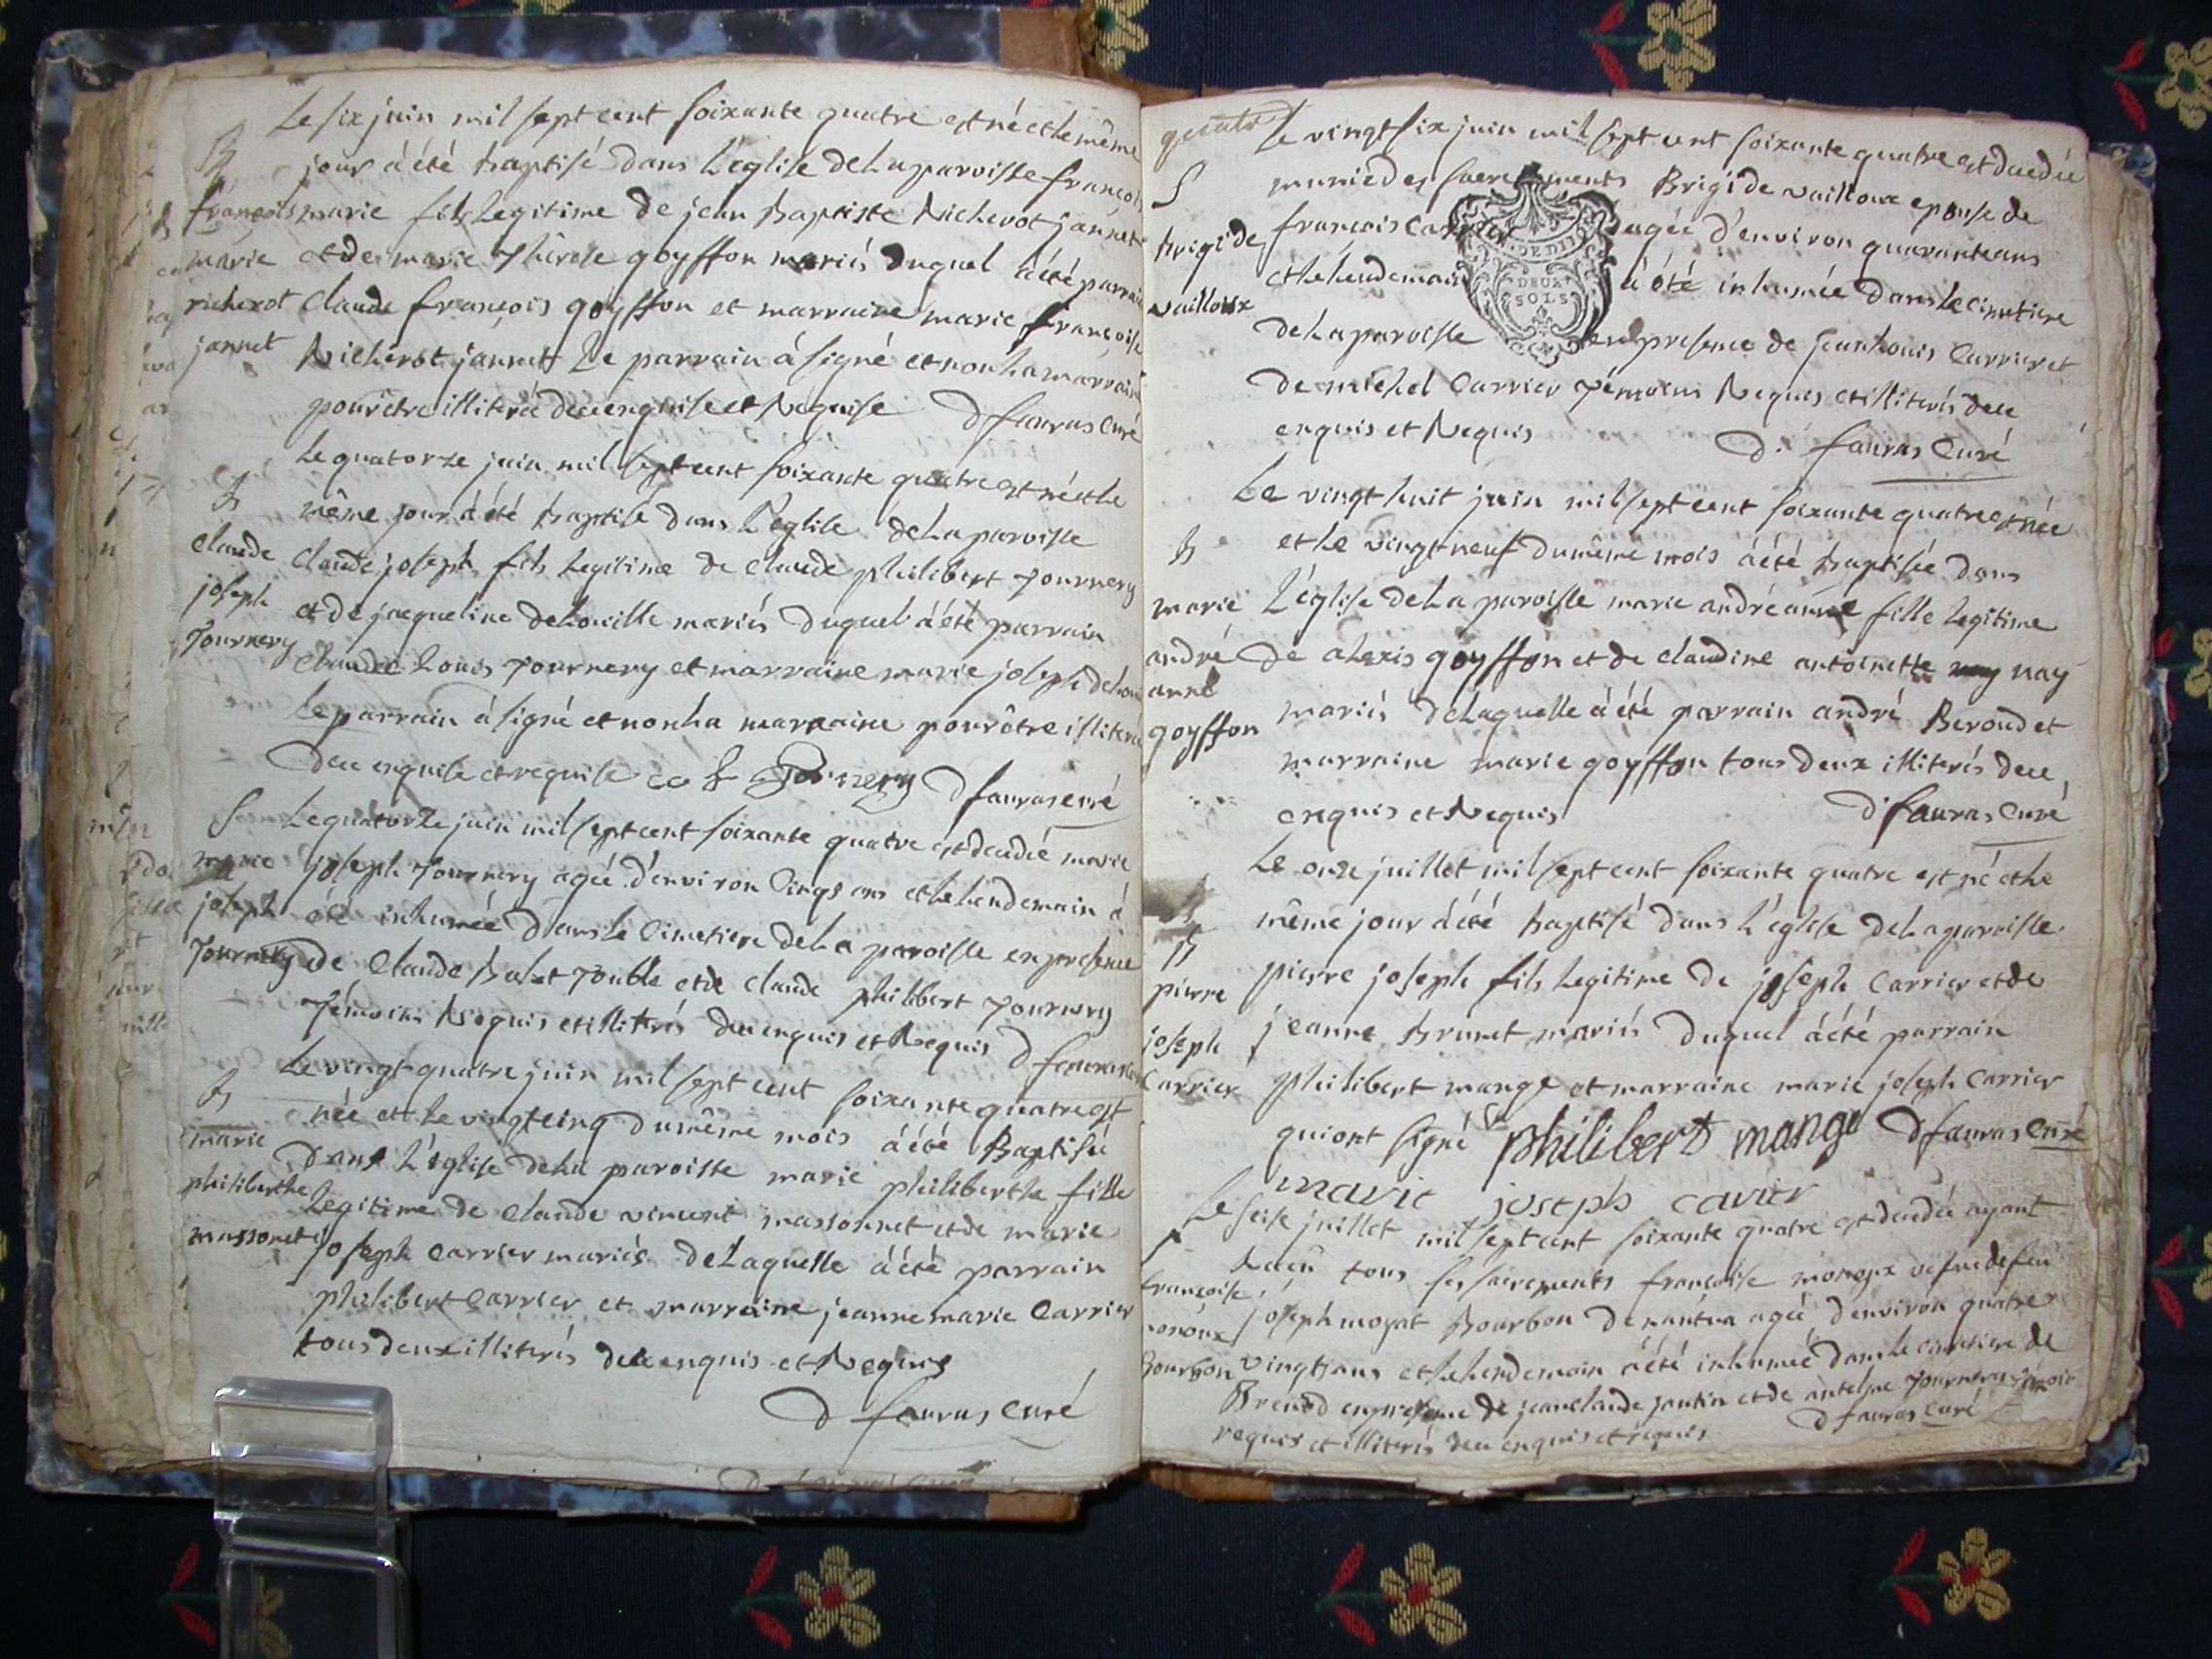 Le six juin mil sept cent soixante quatre est né et le même
B jour à été baptisé dans L'eglise de La paroisse françois
françois marie fils legitime de jean Baptiste Richerot jannet
marie et de marie Thérèse goyffon mariés duquel à été parrain
richerot Claude françois goyffon et marraine marie françoise
jannet Richerot jannet Le parrain à signé et non La marraine
pour être illiterée de ce enquise et Requise D fauras Curé
Le quatorze juin mil sept cent soixante quatre est né et le
B même jour à été baptisé dans L'eglise de La paroisse
Claude Claude joseph fils legitime de Claude philibert Tournery
joseph et de jacqueline delouille mariés duquel à été parrain
Tournery Claude Louis Tournery et marraine marie joseph
Le parrain à signé et non La marraine pour être illiterée
de ce enquise et requise Tornery D fauras curé
S Le quatorze juin mil sept cent soixante quatre est decedée marie
marie joseph Tournery agée d'environ Cinqs ans et le lendemain à
joseph été inhumée dans le Cimetiere de La paroisse en presence
Tournery de Claude Balet Touble et de Claude philibert Tournery
Témoins Requis et illiterés de ce enquis et Requis D fauras
Le vingt quatre juin mil sept cent soixante quatre est
B née et le vingt cinq du même mois à été Baptisée
marie dans L'église de La paroisse marie philiberthe fille
philiberthe Legitime de Claude vincent massonnet et de marie
massonet joseph Carrier mariés de Laquelle à été parrain
philibert Carrier et marraine jeanne marie Carrier
tous deux illiterés de ce enquis et Requis
D fauras Curé
Le vingt six juin mil sept cent soixante quatre est decedée
S munie des sacrements Brigide vailloux epouse de
brigide françois Carrier agée d'environ quarante ans
et le lendemain à été inhumée dans le cimetiere
vailloux
DEUX
SOLS
de La paroisse en presence de jean Louis Carrier et
de michel Carrier Témoins Requis et illiterés de ce
enquis et Requis D. fauras Curé
Le vingt huit juin mil sept cent soixante quatre est née
B et le vingt neuf du même mois à été baptisée dans
marie L'église de La paroisse marie andré anne fille legitime
andré de alexis goyffon et de claudine antoinette nay
anne mariés de Laquelle à été parrain andré Beroud et
goyffon marraine marie goyffon tous deux illiterés de ce
enquis et Requis D fauras Curé
Le onze juillet mil sept cent soixante quatre est né et le
même jour à été baptisé dans L'église de La paroisse
B pierre joseph fils legitime de joseph Carrier et de
pierre
joseph jeanne Brunet mariés duquel à été parrain
Carrier philibert mange et marraine marie joseph Carrier
qui ont signé philibert mange D fauras Curé
marie joseph carier
Le seise juillet mil sept cent soixante quatre est decedée ayant
S Reçu tous ses sacrements françoise monoux vefue de feu
françoise joseph moyat Bourbon de nantua agée d'environ quatre
monoux
Bourbon vingts ans et le lendemain à été inhumée dans le cimetiere de
Brenod en presence de jean claude jantin et de antelme Tournery Témoins
requis et illiterés de ce enquis et requis D fauras Curé